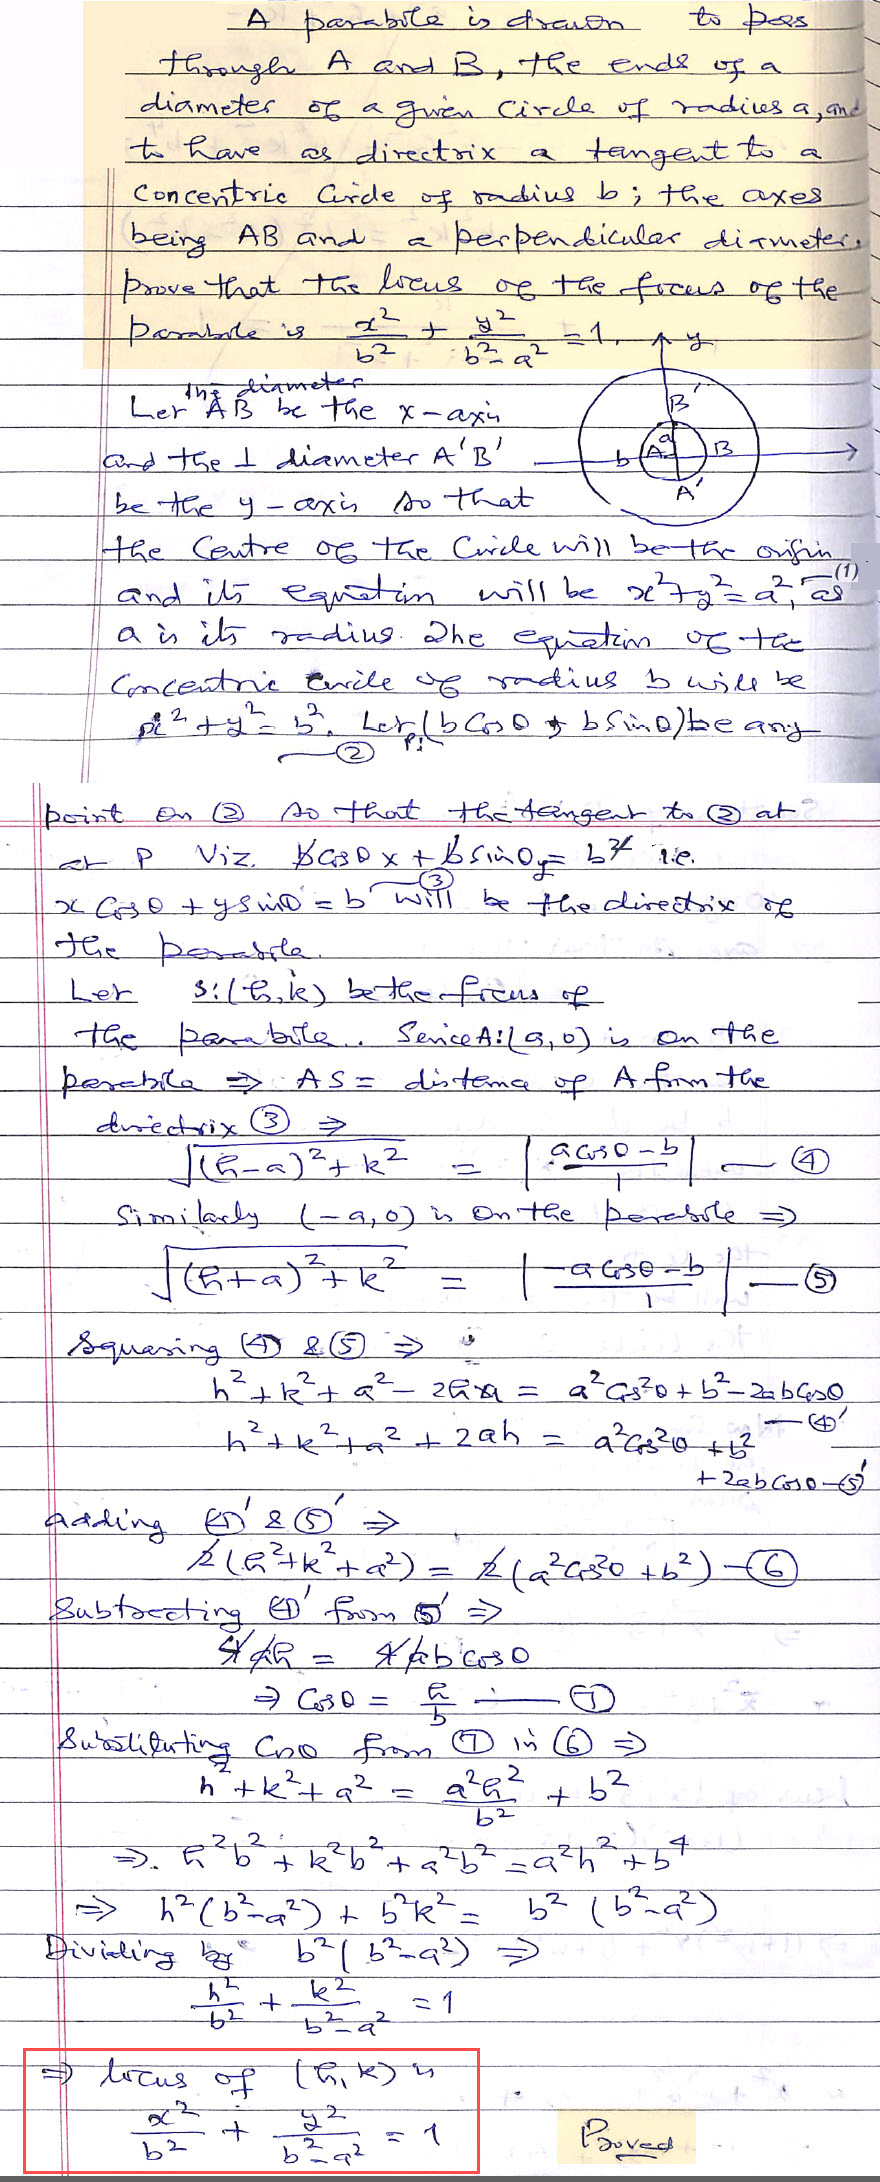 A parabola is drawn to pass
through A and B, the ends of a
diameter of a given circle of radius a, and
to have as directrix a tangent to a
concentric circle of radius b; the axes
being AB and a perpendicular diameter.
Prove that the locus of the focus of the
parabola is x²/b² + y²/(b²-a²) = 1.
y
the diameter
Let AB be the x-axis
and the ⊥ diameter A'B'
be the y-axis so that
B'
a
b
A
B
A'
the centre of the circle will be the origin
and its equation will be x²+y²=a², —(1) as
a is its radius. The equation of the
concentric circle of radius b will be
x²+y²=b². Let P:(b cosθ, b sinθ) be any
—②
point on ② so that the tangent to ② at
at P viz. b cosθ x + b sinθ y = b² i.e.
x cosθ + y sinθ = b —③ will be the directrix of
the parabola.
Let S:(h,k) be the focus of
the parabola. Since A:(a,0) is on the
parabola ⇒ AS = distance of A from the
directrix ③ ⇒
√((h-a)²+k²) = |(a cosθ-b)/1| —④
Similarly (-a,0) is on the parabola ⇒
√((h+a)²+k²) = |(-a cosθ-b)/1| —⑤
Squaring ④ & ⑤ ⇒
h²+k²+a²-2ha = a²cos²θ+b²-2ab cosθ
—④'
h²+k²+a²+2ah = a²cos²θ+b²
+2ab cosθ —⑤'
Adding ④' & ⑤' ⇒
2(h²+k²+a²) = 2(a²cos²θ+b²) —⑥
Subtracting ④' from ⑤' ⇒
4ah = 4ab cosθ
⇒ cosθ = h/b —⑦
Substituting cosθ from ⑦ in ⑥ ⇒
h²+k²+a² = a²h²/b² + b²
⇒. h²b²+k²b²+a²b²=a²h²+b⁴
⇒ h²(b²-a²) + b²k² = b²(b²-a²)
Dividing by b²(b²-a²) ⇒
h²/b² + k²/(b²-a²) = 1
⇒ locus of (h,k) is
x²/b² + y²/(b²-a²) = 1
Proved